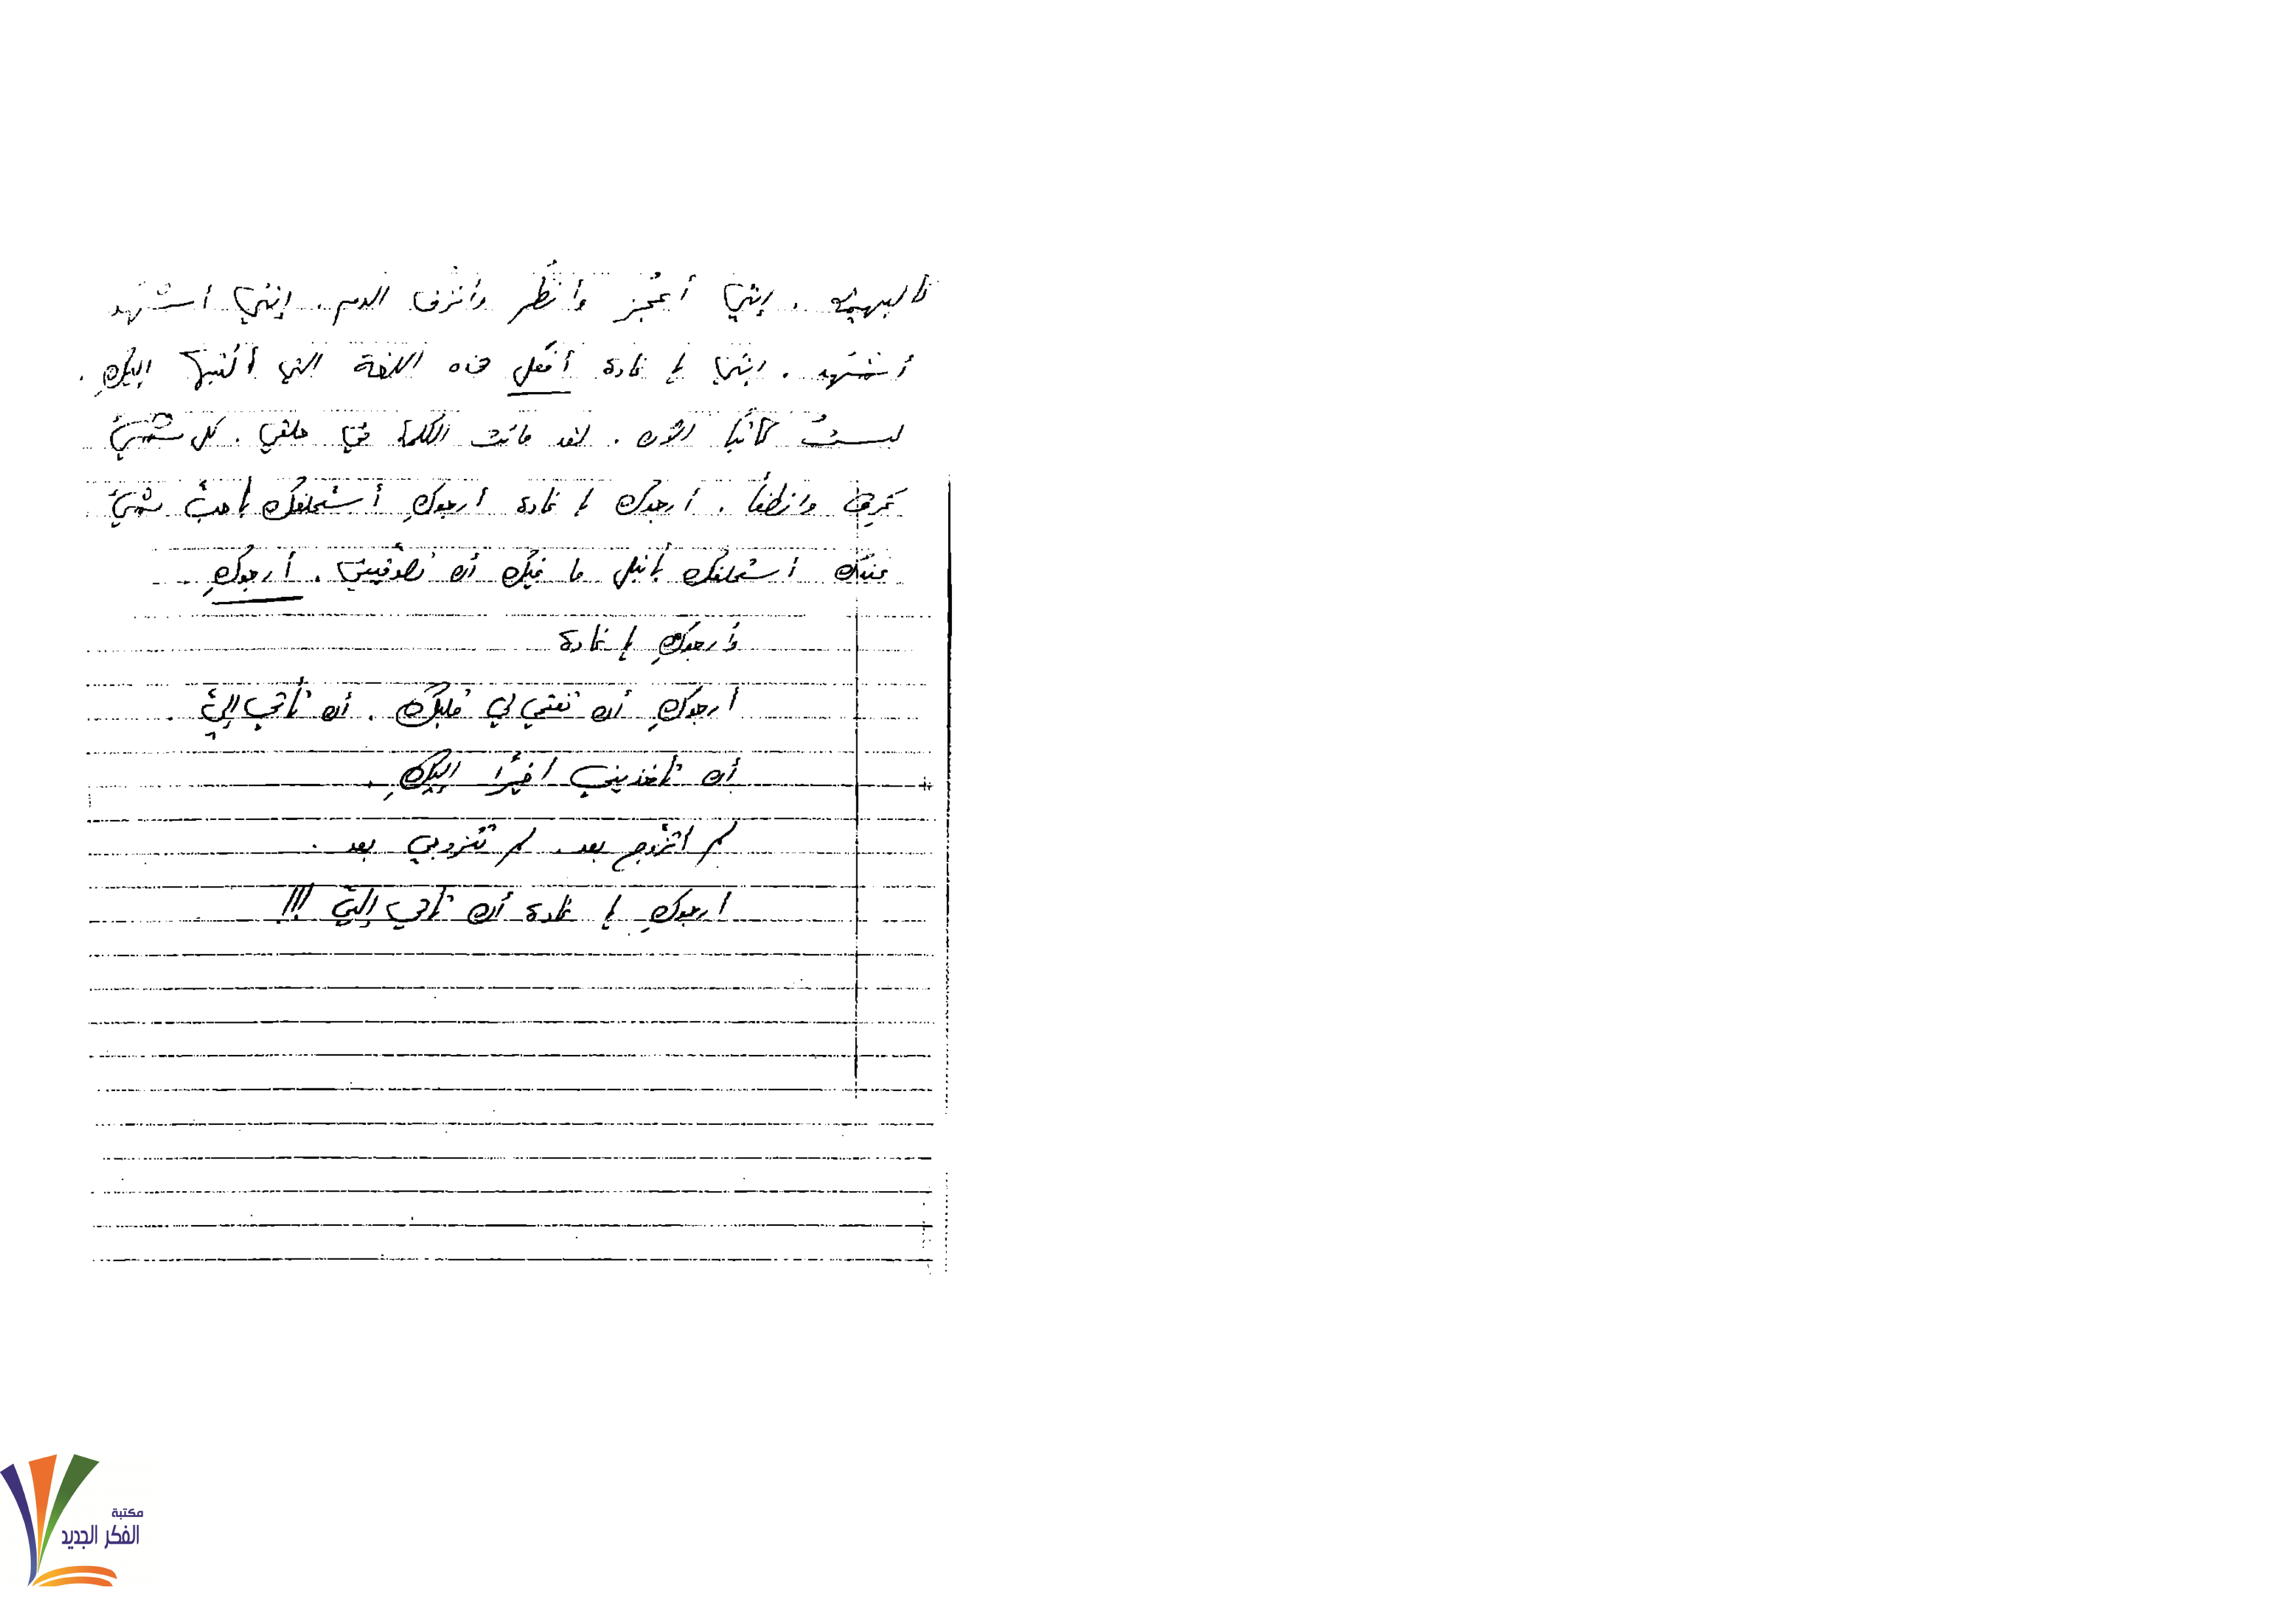 كالبهيمة . إنني أعجز وأنظر وأنزف الدم . إنني أستشهد
أستشهد . إنني يا غادة أفعل هذه اللغة التي أكتبها إليكِ .
لستُ كاتبًا الآن . لقد ماتت الكلمة في حلقي . كل شيء
غرق وانطفأ . أرجوك يا غادة أرجوكِ أستحلفك بأحبّ شيء
عندك أستحلفك بأنبل ما فيك أن تصدقيني . أرجوكِ
وأرجوكِ يا غادة
أرجوكِ أن تفتحي لي قلبك . أن تأتي إليّ .
أن تأخذيني أخيرًا إليكِ .
لم أتزوج بعد . لم تتزوجي بعد .
أرجوكِ يا غادة أن تأتي إليّ !!!
مكتبة
الفكر الجديد